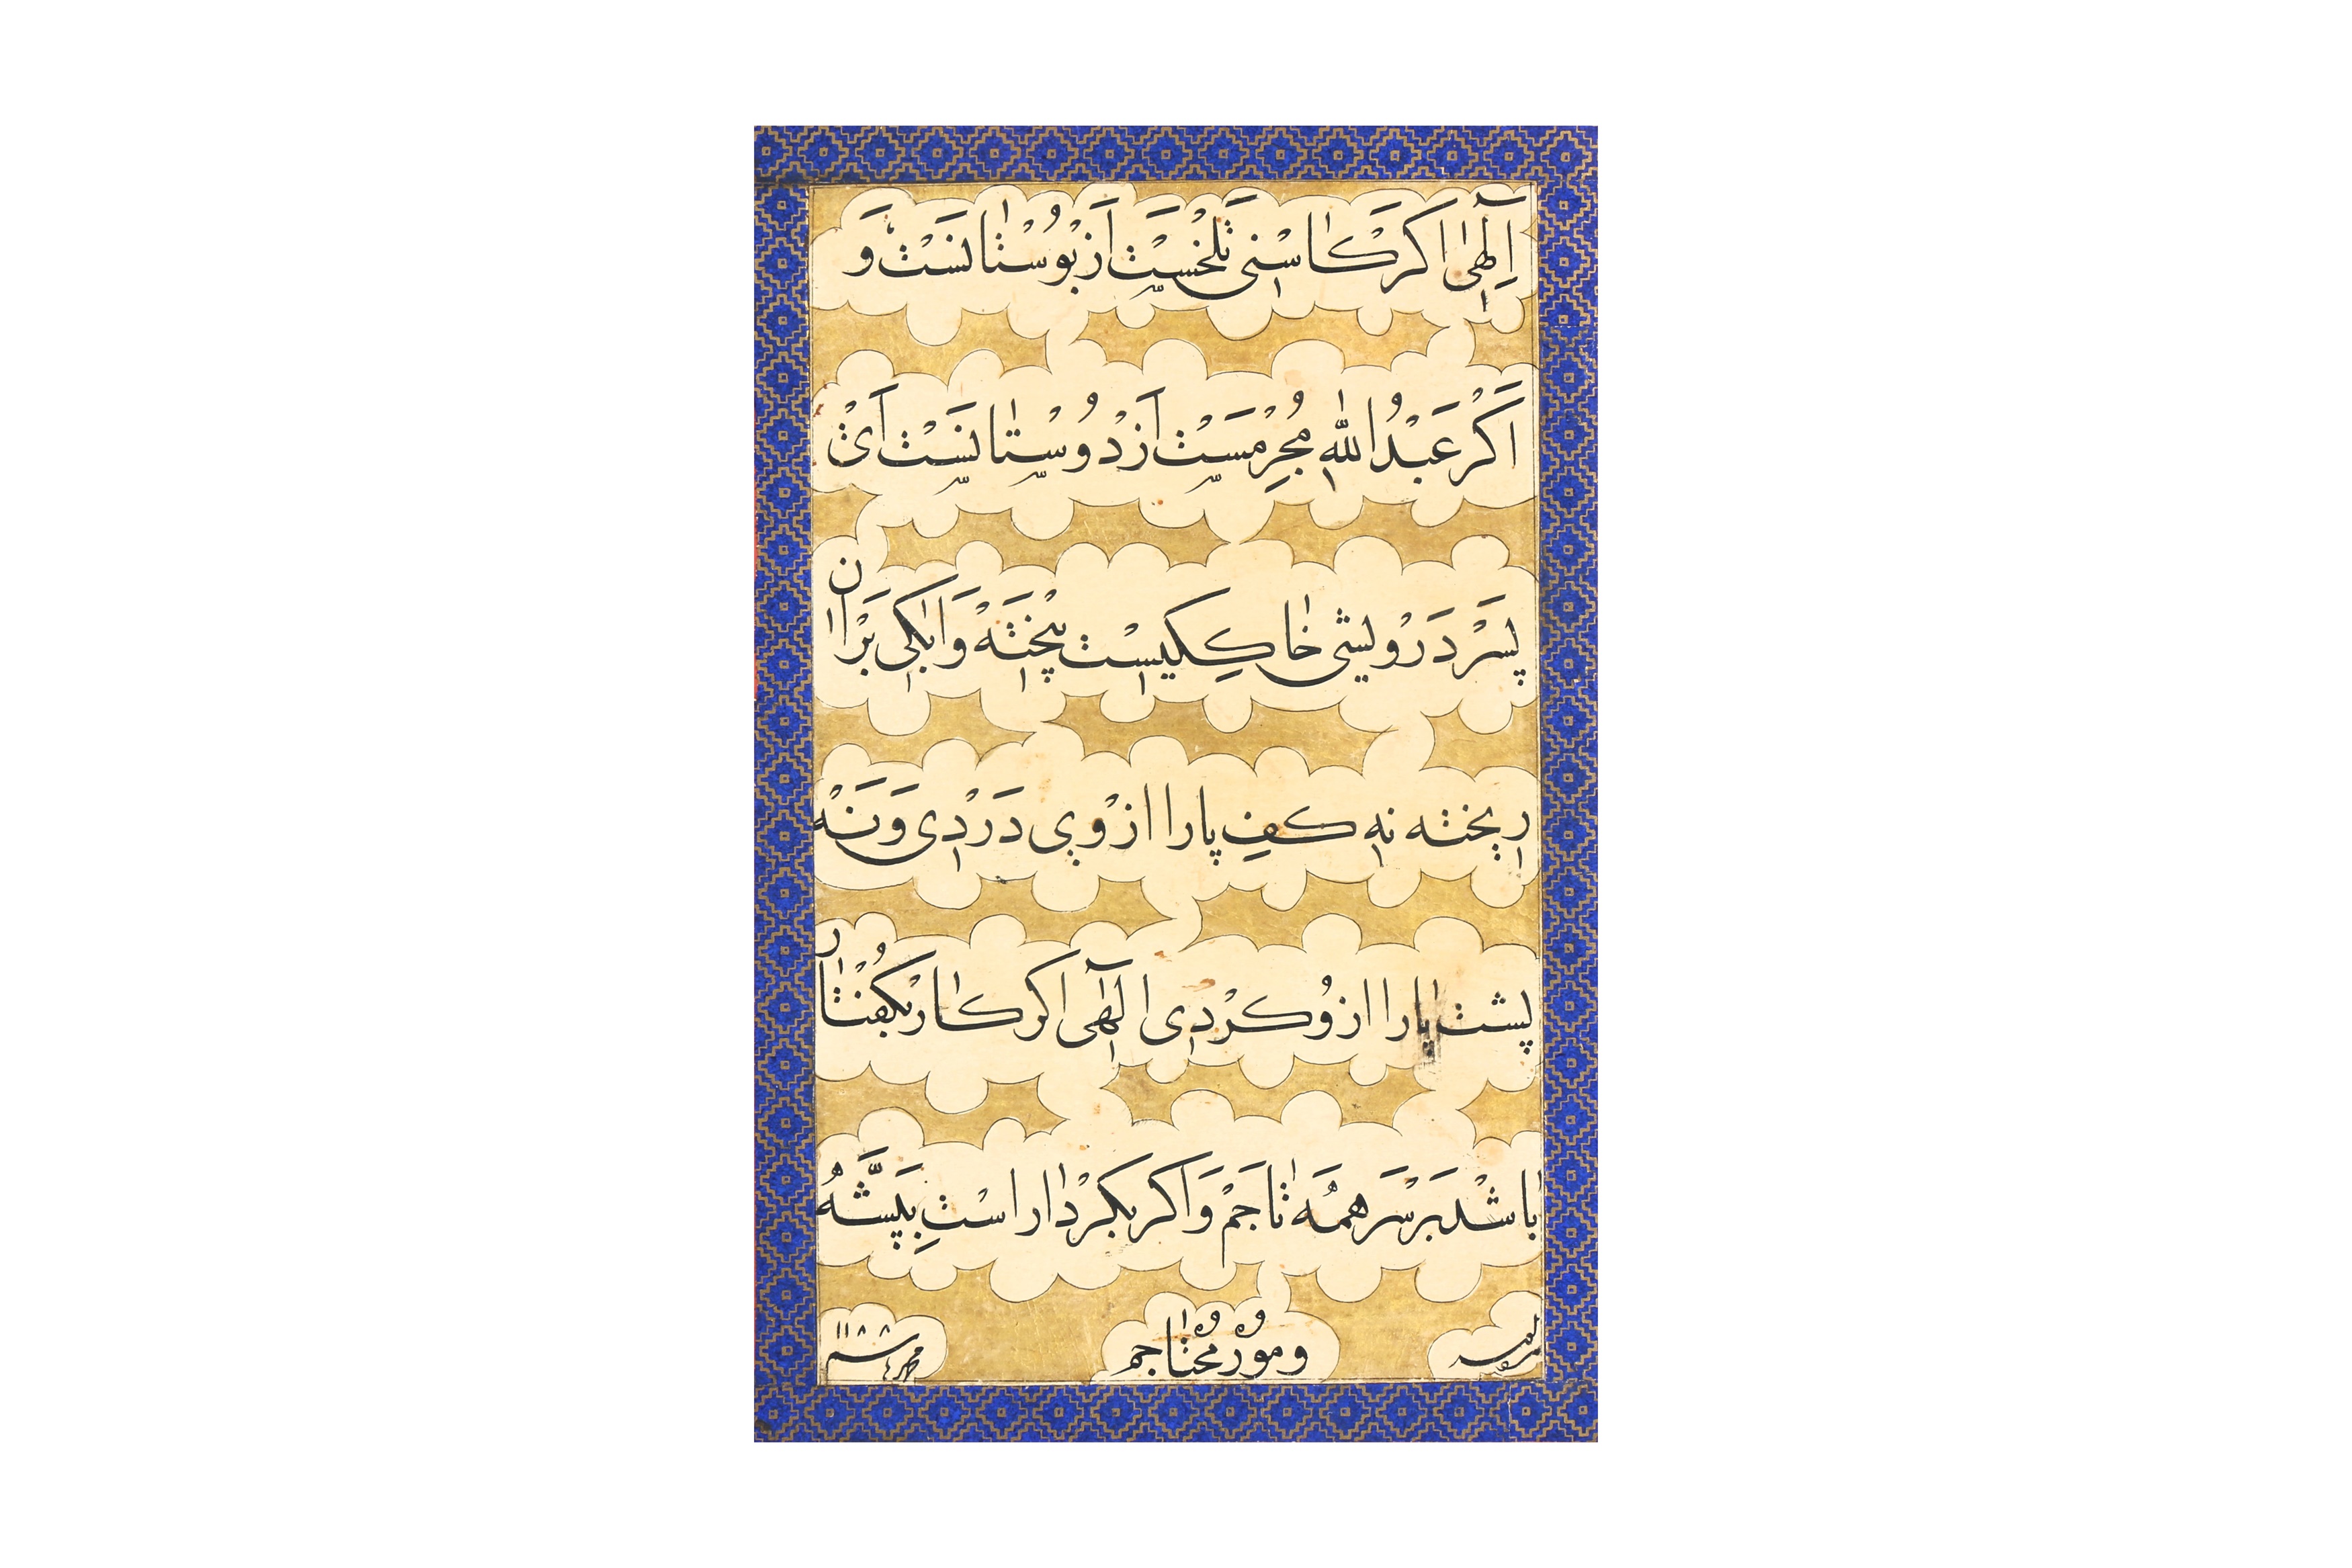 اِلٰهِی اگر کاسنی تلخست از بوستانست و
اگر عبدالله مجرمست از دوستانست ای
پسر درویشی خاکیست پخته و ابکی بران
ریخته نه کف پا را از وی دردی و نه
پشت پا را ازو کردی الهی اگر کار بکفتار
باشد بر سر همه تاجم و اگر بکردار است بپشّه
و مور محتاجم
۱۱۸۸